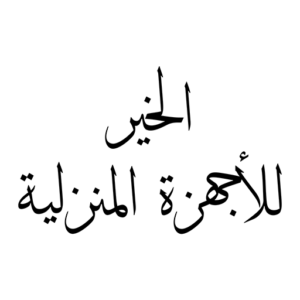 الخير
للأجهزة المنزلية